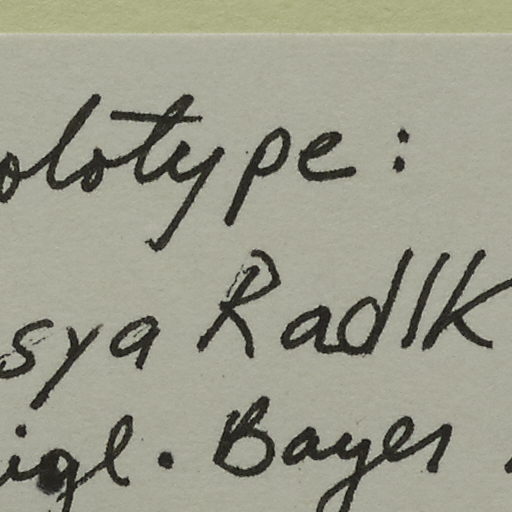 olotype:
sya Radlk
igl. Bayer